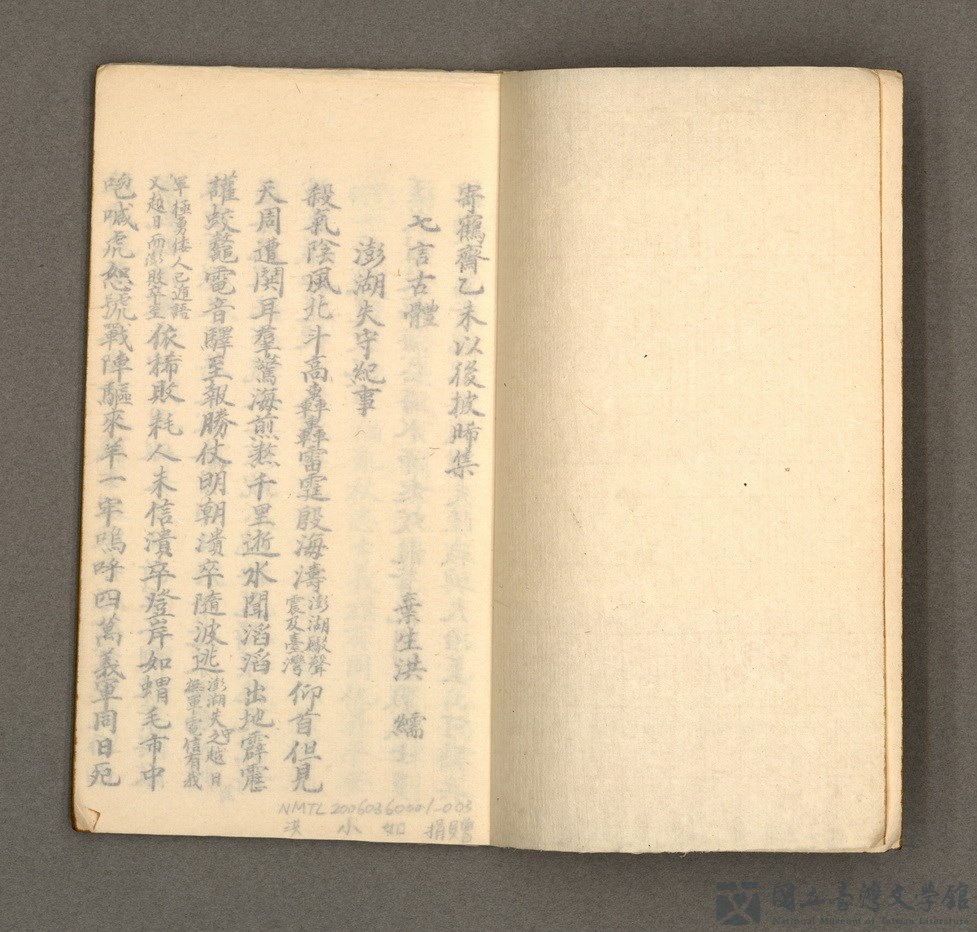 寄鶴齋乙未以後披晞集
七言古體　棄生洪繻
澎湖失守紀事
殺氣陰風北斗高轟轟雷霆殷海濤澎湖礮聲震及臺灣仰首但見
天周遭鬨耳羣驚海煎熬千里逝水聞滔滔出地霹靂
讙蛟鼉電音驛至報勝仗明朝潰卒隨波逃澎湖失守之越日撫軍電信有我
軍極勇倭人已遁語又越日而澎敗卒至依稀敗耗人未信潰卒登岸如蝟毛市中
咆喊虎怒號戰陣驅來羊一牢嗚呼四萬義軍同日死
NMTL20060360001-003
洪小如捐贈
國立臺灣文學館
National Museum of Taiwan Literature